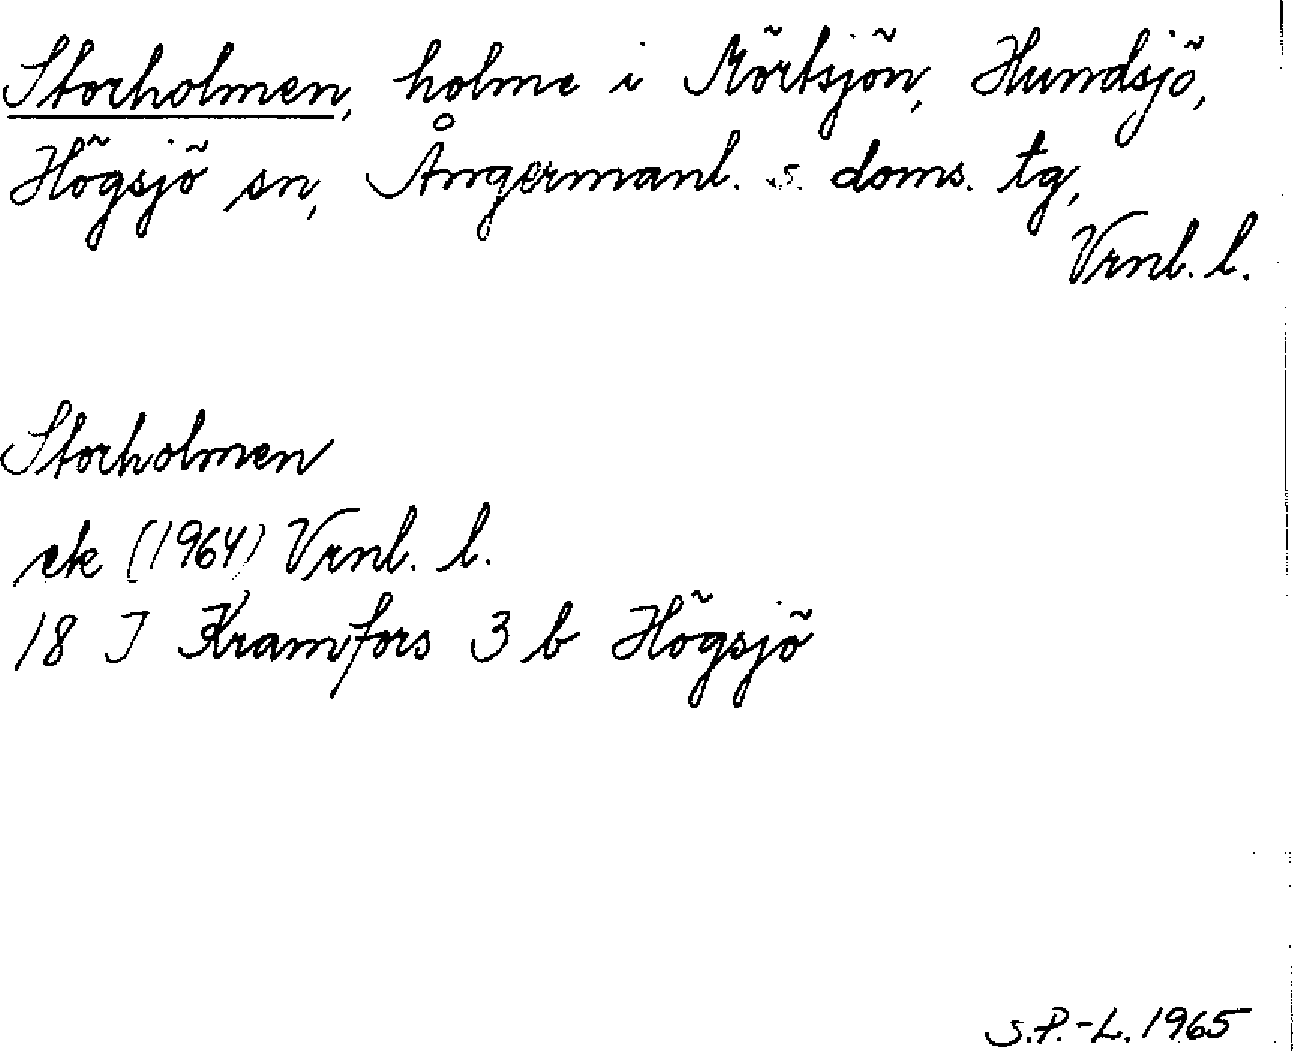 Storholmen, holme i Mörtsjön, Hundsjö,
Högsjö sn, Ångermanl. s. doms. tg,
Vrnl. l.
Storholmen
ek (1964) Vrnl. l.
18 I Kramfors 3 b Högsjö
S.P.-L. 1965